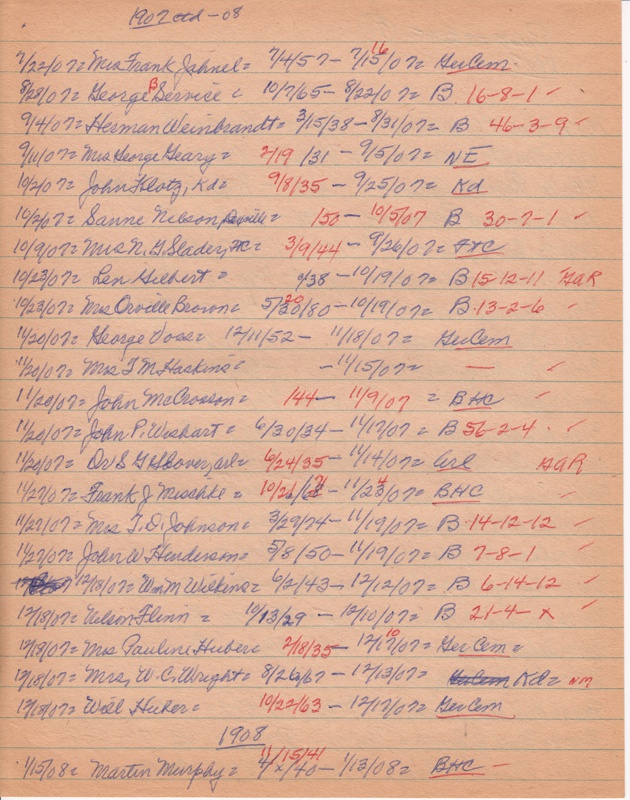 1907 ctd - 08
7/22/07 = Mrs Frank Jahnel = 7/4/57 - 7/15/07 = GerCem 16
8/28/07 = George B Service = 10/7/65 - 8/22/07 = B 16-8-1 ✓
9/4/07 = Herman Weinbrandt = 3/15/38 - 8/31/07 = B 46-3-9 ✓
9/11/07 = Mrs George Geary = 2/19/31 - 9/5/07 = NE
10/2/07 = John Klotz, Kd = 9/8/35 - 9/25/07 = Kd
10/2/07 = Sanne Nelson = 150 - 10/5/07 B 30-7-1 ✓
10/9/07 = Mrs N. G. Slader, = 3/9/44 - 9/26/07 =
10/23/07 = Len Gilbert = /38 - 10/19/07 = B 15-12-11 GAR
10/23/07 = Mrs Orville Brown = 5/30/80 - 10/19/07 = B 13-2-6 ✓ 20
11/20/07 = George Voss = 12/11/52 - 11/18/07 = GerCem
11/20/07 = Mrs T M Haskins = - 11/15/07 = — ✓
11/20/07 = John McCrosson = 144 - 11/9/07 = BHC ✓
11/20/07 = John P. Wishart = 6/30/34 - 11/17/07 = B 56-2-4 ✓
11/20/07 = Dr S G Hoover, arl = 6/24/35 - 11/14/07 = arl GAR
11/27/07 = Frank J Mischke = 10/21/ - 11/23/07 = BHC ✓ 4
11/27/07 = Mrs T. D. Johnson = 3/29/74 - 11/19/07 = B 14-12-12 ✓
11/27/07 = John W Henderson = 5/8/50 - 11/19/07 = B 7-8-1 ✓
12/18/07 = Wm M Wilkins = 6/2/43 - 12/12/07 = B 6-14-12 ✓
12/18/07 = Nelson Flinn = 10/13/29 - 12/10/07 = B 21-4-x ✓
12/19/07 = Mrs Pauline Huber = 2/18/35 - 12/17/07 = GerCem = 10
12/18/07 = Mrs, W. C. Wright = 8/26/67 - 12/13/07 = GerCem Kd = NM
12/18/07 = Will Huber = 10/22/63 - 12/17/07 = GerCem
1908
1/15/08 = Martin Murphy = 4/x/40 - 1/13/08 = BHC - 11/15/41